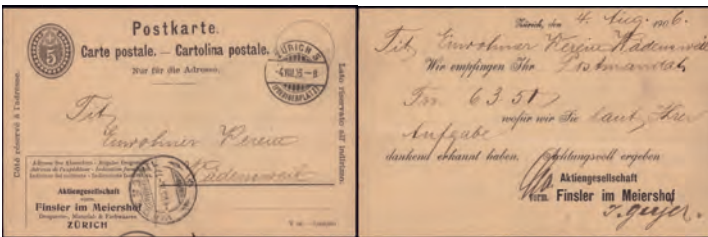 Postkarte.
Carte postale. — Cartolina postale.
Nur für die Adresse.
5
Côté réservé à l'adresse.
Lato riservato all' indirizzo.
ZÜRICH
Tit
Einwohner Verein
Wädensweil
Aktiengesellschaft
vorm.
Finsler im Meiershof
ZÜRICH
Zürich, den 4. Aug. 1906.
Tit. Einwohner Verein Wädensweil
Wir empfingen Ihr Postmandat
Frs. 63.50
wofür wir Sie laut Ihrer
Aufgabe
dankend erkannt haben. Achtungsvoll ergeben
Aktiengesellschaft
vorm. Finsler im Meiershof